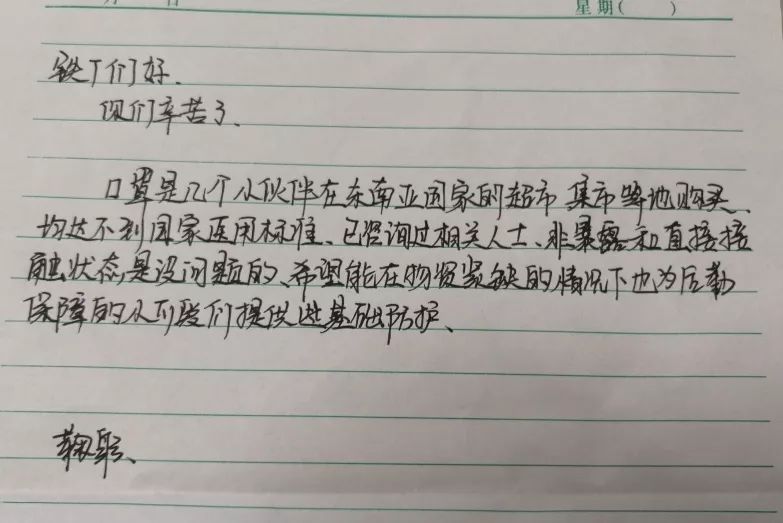 星期(  )
铁丁们好、
你们辛苦了、
口罩是几个小伙伴在东南亚国家的超市 集市等地购买、
均达不到国家医用标准、已咨询过相关人士、非暴露和直接接
触状态是没问题的、希望能在物资紧缺的情况下也为后勤
保障的小可爱们提供些基础防护、
鞠躬、